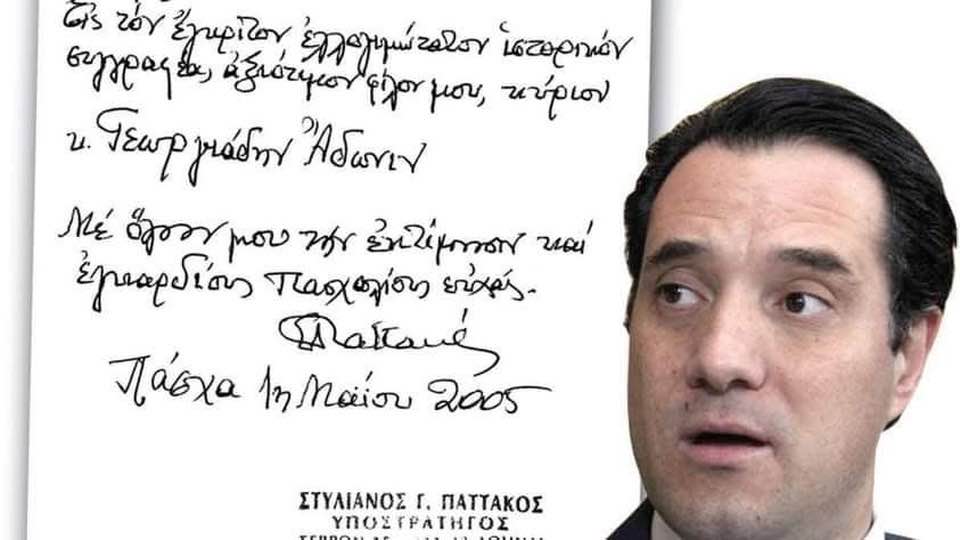 Εἰς τόν ἔγκριτον ἐλλογιμώτατον ἱστορικόν
συγγραφέα, ἀξιότιμον φίλον μου, κύριον
κ. Γεωργιάδην Ἄδωνιν
Μέ ὅλην μου τήν ἐκτίμησιν καί
ἐγκαρδίους Πασχαλίους εὐχάς.
Παττακός
Πάσχα 1η Μαΐου 2005
ΣΤΥΛΙΑΝΟΣ Γ. ΠΑΤΤΑΚΟΣ
ΥΠΟΣΤΡΑΤΗΓΟΣ